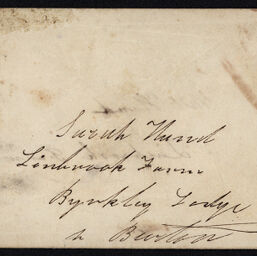 Sarah Hand
Linbrook Farm
Byrkley Lodge
n Burton